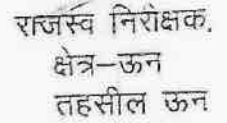 राजस्व निरीक्षक.
क्षेत्र-ऊन
तहसील ऊन